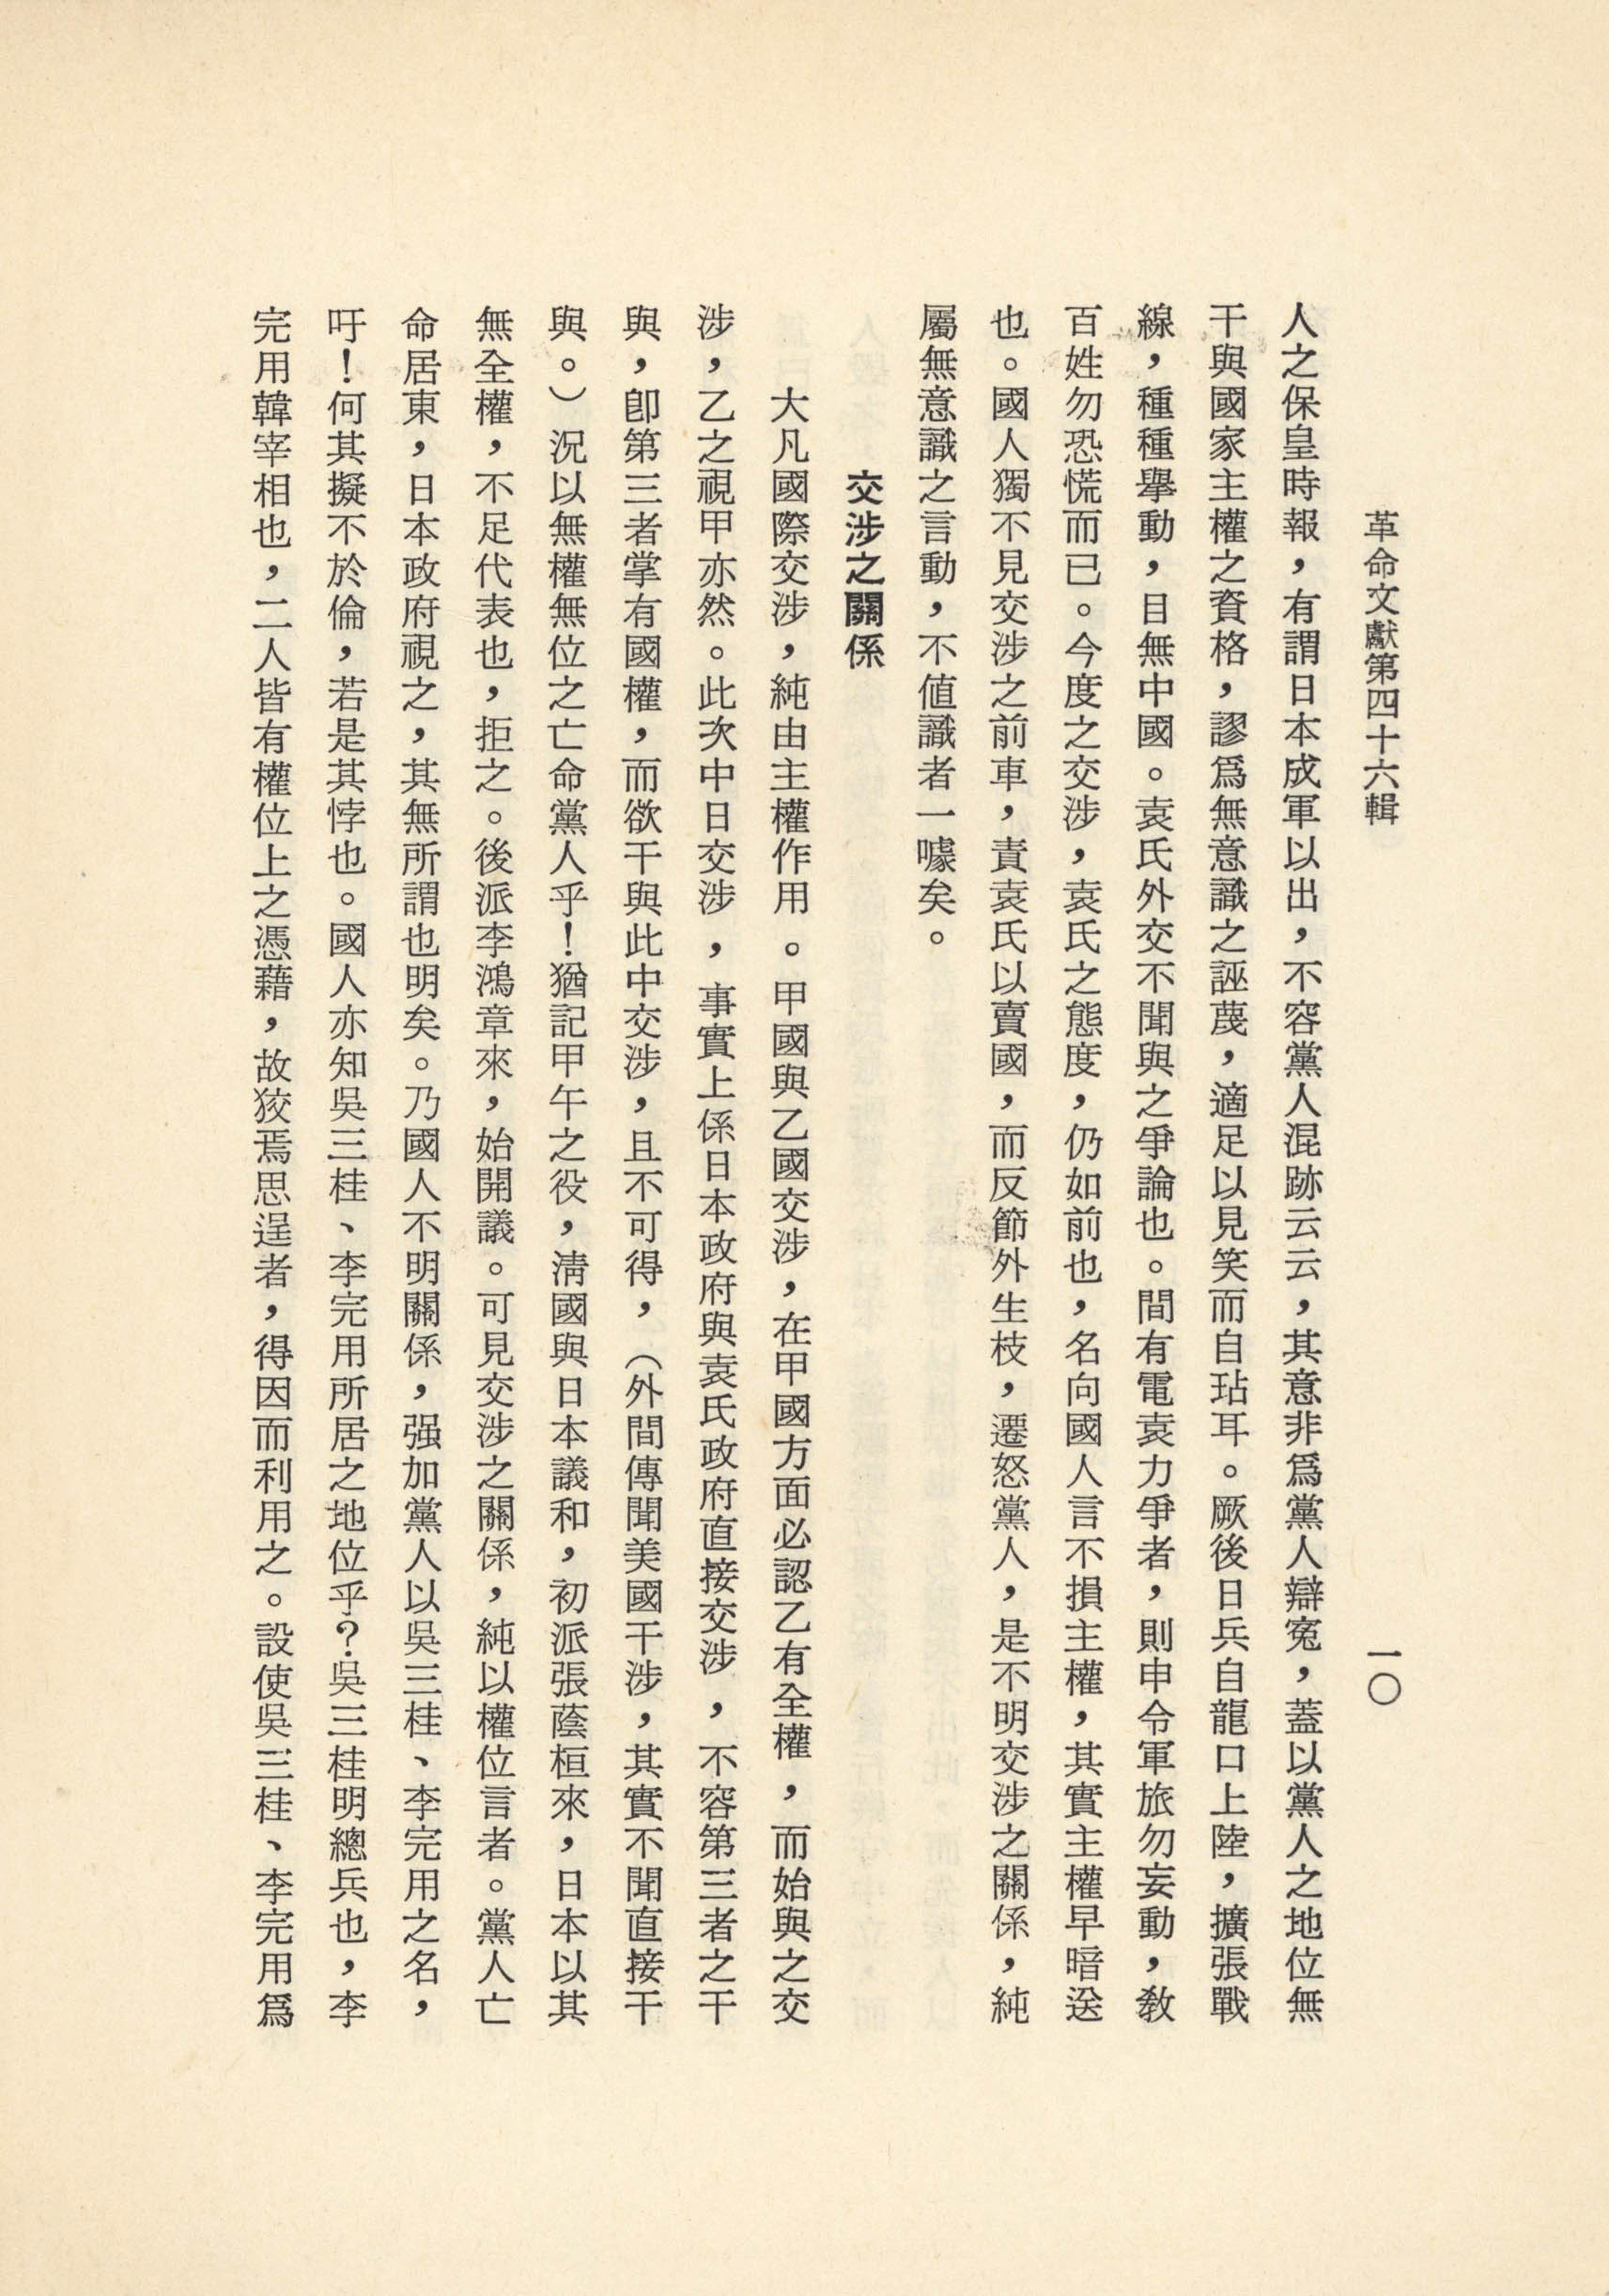 革命文獻第四十六輯
一〇
人之保皇時報，有謂日本成軍以出，不容黨人混跡云云，其意非爲黨人辯冤，蓋以黨人之地位無
干與國家主權之資格，謬爲無意識之誣蔑，適足以見笑而自玷耳。厥後日兵自龍口上陸，擴張戰
線，種種舉動，目無中國。袁氏外交不聞與之爭論也。間有電袁力爭者，則申令軍旅勿妄動，教
百姓勿恐慌而已。今度之交涉，袁氏之態度，仍如前也，名向國人言不損主權，其實主權早暗送
也。國人獨不見交涉之前車，責袁氏以賣國，而反節外生枝，遷怒黨人，是不明交涉之關係，純
屬無意識之言動，不值識者一噱矣。
交涉之關係
大凡國際交涉，純由主權作用。甲國與乙國交涉，在甲國方面必認乙有全權，而始與之交
涉，乙之視甲亦然。此次中日交涉，事實上係日本政府與袁氏政府直接交涉，不容第三者之干
與，卽第三者掌有國權，而欲干與此中交涉，且不可得，（外間傳聞美國干涉，其實不聞直接干
與。）況以無權無位之亡命黨人乎！猶記甲午之役，淸國與日本議和，初派張蔭桓來，日本以其
無全權，不足代表也，拒之。後派李鴻章來，始開議。可見交涉之關係，純以權位言者。黨人亡
命居東，日本政府視之，其無所謂也明矣。乃國人不明關係，强加黨人以吳三桂、李完用之名，
吁！何其擬不於倫，若是其悖也。國人亦知吳三桂、李完用所居之地位乎？吳三桂明總兵也，李
完用韓宰相也，二人皆有權位上之憑藉，故狡焉思逞者，得因而利用之。設使吳三桂、李完用爲